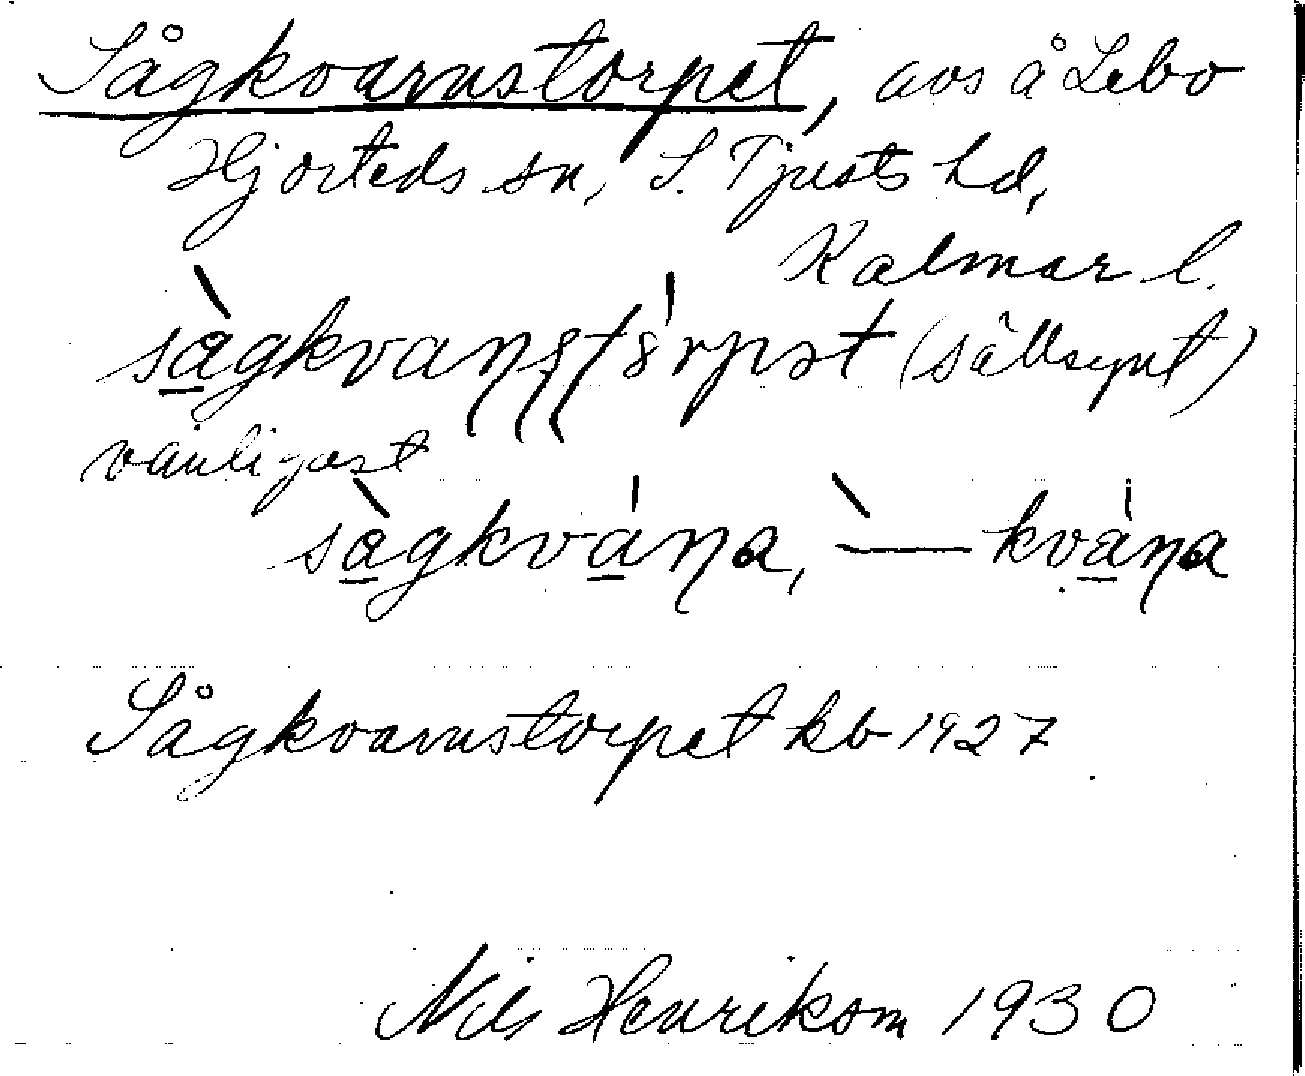 Sågkvarnstorpet, avs å Lebo
Hjorteds sn, S. Tjusts hd,
Kalmar l.
(sällsynt)
vanligast
Sågkvarnstorpet kb 1927
Nils Henrikson 1930